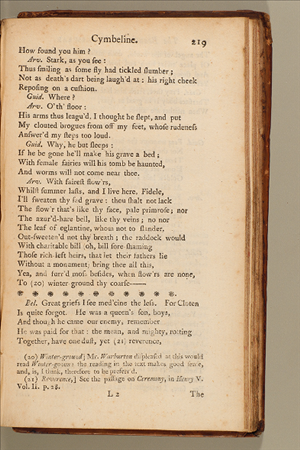 Cymbeline. 219
How found you him ?
Arv. Stark, as you ſee :
Thus ſmiling as ſome fly had tickled ſlumber ;
Not as death's dart being laugh'd at : his right cheek
Repoſing on a cuſhion.
Guid. Where ?
Arv. O'th' floor :
His arms thus leagu'd. I thought he ſlept, and put
My clouted brogues from off my feet, whoſe rudeneſs
Anſwer'd my ſteps too loud.
Guid. Why, he but ſleeps :
If he be gone he'll make his grave a bed ;
With female fairies will his tomb be haunted,
And worms will not come near thee.
Arv. With faireſt flow'rs,
Whilſt ſummer laſts, and I live here, Fidele,
I'll ſweeten thy ſad grave : thou ſhalt not lack
The flow'r that's like thy face, pale primroſe ; nor
The azur'd hare bell, like thy veins ; no nor
The leaf of eglantine, whoſe not to ſlander,
Out-ſweeten'd not thy breath ; the raddock would
With charitable bill (oh, bill ſore ſhaming
Thoſe rich-left heirs, that let their fathers lie
Without a monument) bring thee all this,
Yea, and furr'd moſs beſides, when flow'rs are none,
To (20) winter ground thy coarſe——
* * * * * * * * * *
Bel. Great griefs I ſee med'cine the leſs. For Cloten
Is quite forgot. He was a queen's ſon, boys,
And though he came our enemy, remember
He was paid for that : the mean, and mighty, rotting
Together, have one duſt, yet (21) reverence,
(20) Winter-ground ] Mr. Warburton diſpleaſed at this would
read Winter-gown: the reading in the text makes good ſenſe,
and, is, I think, therefore to be prefer'd.
(21) Reverence, ] See the paſſage on Ceremony, in Henry V.
Vol. II. p. 28.
L 2 The